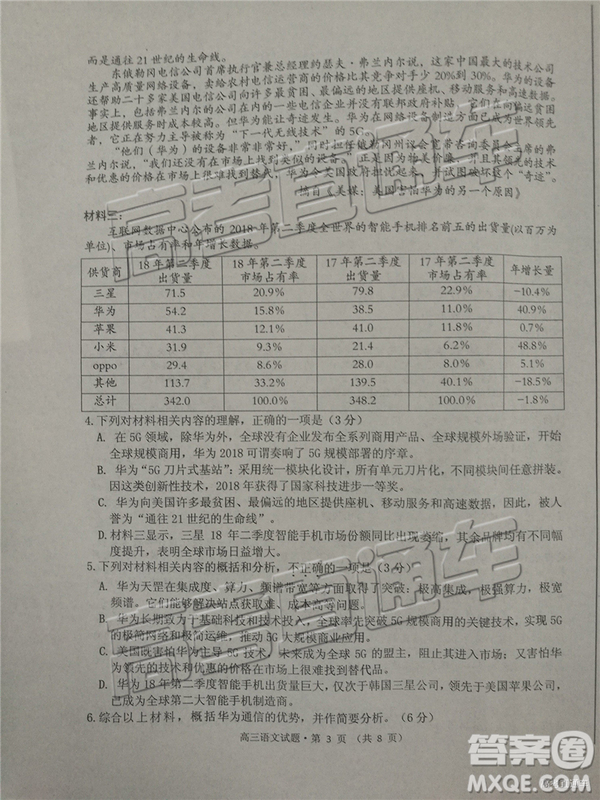 而是通往 21 世纪的生命线。
东俄勒冈电信公司首席执行官兼总经理约瑟夫·弗兰内尔说，这家中国最大的技术公司
生产高质量网络设备，卖给农村电信运营商的价格比其竞争对手少 20%到 30%。华为的设备
还帮助二十多家美国电信公司向许多最贫困、最偏远的地区提供座机、移动服务和高速数据，
事实上，包括弗兰内尔的公司在内的一些电信企业并没有联邦政府补贴，它们在向偏远贫困
地区提供服务时成本较高。但华为能让奇迹发生。华为在网络设备制造方面已成为世界领先
者，它正在努力主导被称为“下一代无线技术”的 5G。
“他们（华为）的设备非常非常好，”同时担任俄勒冈州议会宽带咨询委员会主席的弗
兰内尔说，“我们还没有在市场上找到类似的设备。”正因为物美价廉，其领先的技术和
优惠的价格在市场上很难找到替代。华为令美国政府担忧起来，并试图破坏这个“奇迹”。
（摘自《美媒：美国害怕华为的另一个原因》）
材料三：
互联网数据中心公布的 2018 年第二季度全世界的智能手机排名前五的出货量（以百万为
单位）、市场占有率和年增长数据。
供货商 18 年第二季度出货量 18 年第二季度市场占有率 17 年第二季度出货量 17 年第二季度市场占有率 年增长量
三星 71.5 20.9% 79.8 22.9% -10.4%
华为 54.2 15.8% 38.5 11.0% 40.9%
苹果 41.3 12.1% 41.0 11.8% 0.7%
小米 31.9 9.3% 21.4 6.2% 48.8%
oppo 29.4 8.6% 28.0 8.0% 5.1%
其他 113.7 33.2% 139.5 40.1% -18.5%
总计 342.0 100.0% 348.2 100.0% -1.8%
4. 下列对材料相关内容的理解，正确的一项是（3 分）
A. 在 5G 领域，除华为外，全球没有企业发布全系列商用产品、全球规模外场验证，开始
全球规模商用，华为 2018 可谓奏响了 5G 规模部署的序章。
B. 华为“5G 刀片式基站”：采用统一模块化设计，所有单元刀片化，不同模块间任意拼装。
因这类创新性技术，2018 年获得了国家科技进步一等奖。
C. 华为向美国许多最贫困、最偏远的地区提供座机、移动服务和高速数据，因此，被人
誉为“通往 21 世纪的生命线”。
D. 材料三显示，三星 18 年二季度智能手机市场份额同比出现萎缩，其余品牌均有不同幅
度提升，表明全球市场日益增大。
5. 下列对材料相关内容的概括和分析，不正确的一项是（3 分）
A. 华为天罡在集成度、算力、频谱带宽等方面取得了突破：极高集成，极强算力，极宽
频谱。它们能够解决站点获取难、成本高等问题。
B. 极简原则致力于基础科技和，全球实现 5G 规模商用的关键技术，实现 5G
的极简网络和极简运维，推动 5G 大规模商业应用。
C. 美国既害怕华为主导 5G 技术，未来成为全球 5G 的盟主，阻止其进入美国市场，又因
为其领先的技术和优惠的价格在市场上很难找到替代品。
D. 华为 18 年第二季度智能手机出货量巨大，仅次于韩国三星公司，领先于美国苹果公司，
成为全球第二大智能手机制造商。
6. 综合以上材料，概括华为通信的优势，并作简要分析。（6 分）
高三语文试题·第 3 页 （共 8 页）
高考直通车
高考直通车
答案圈
MXQE.COM